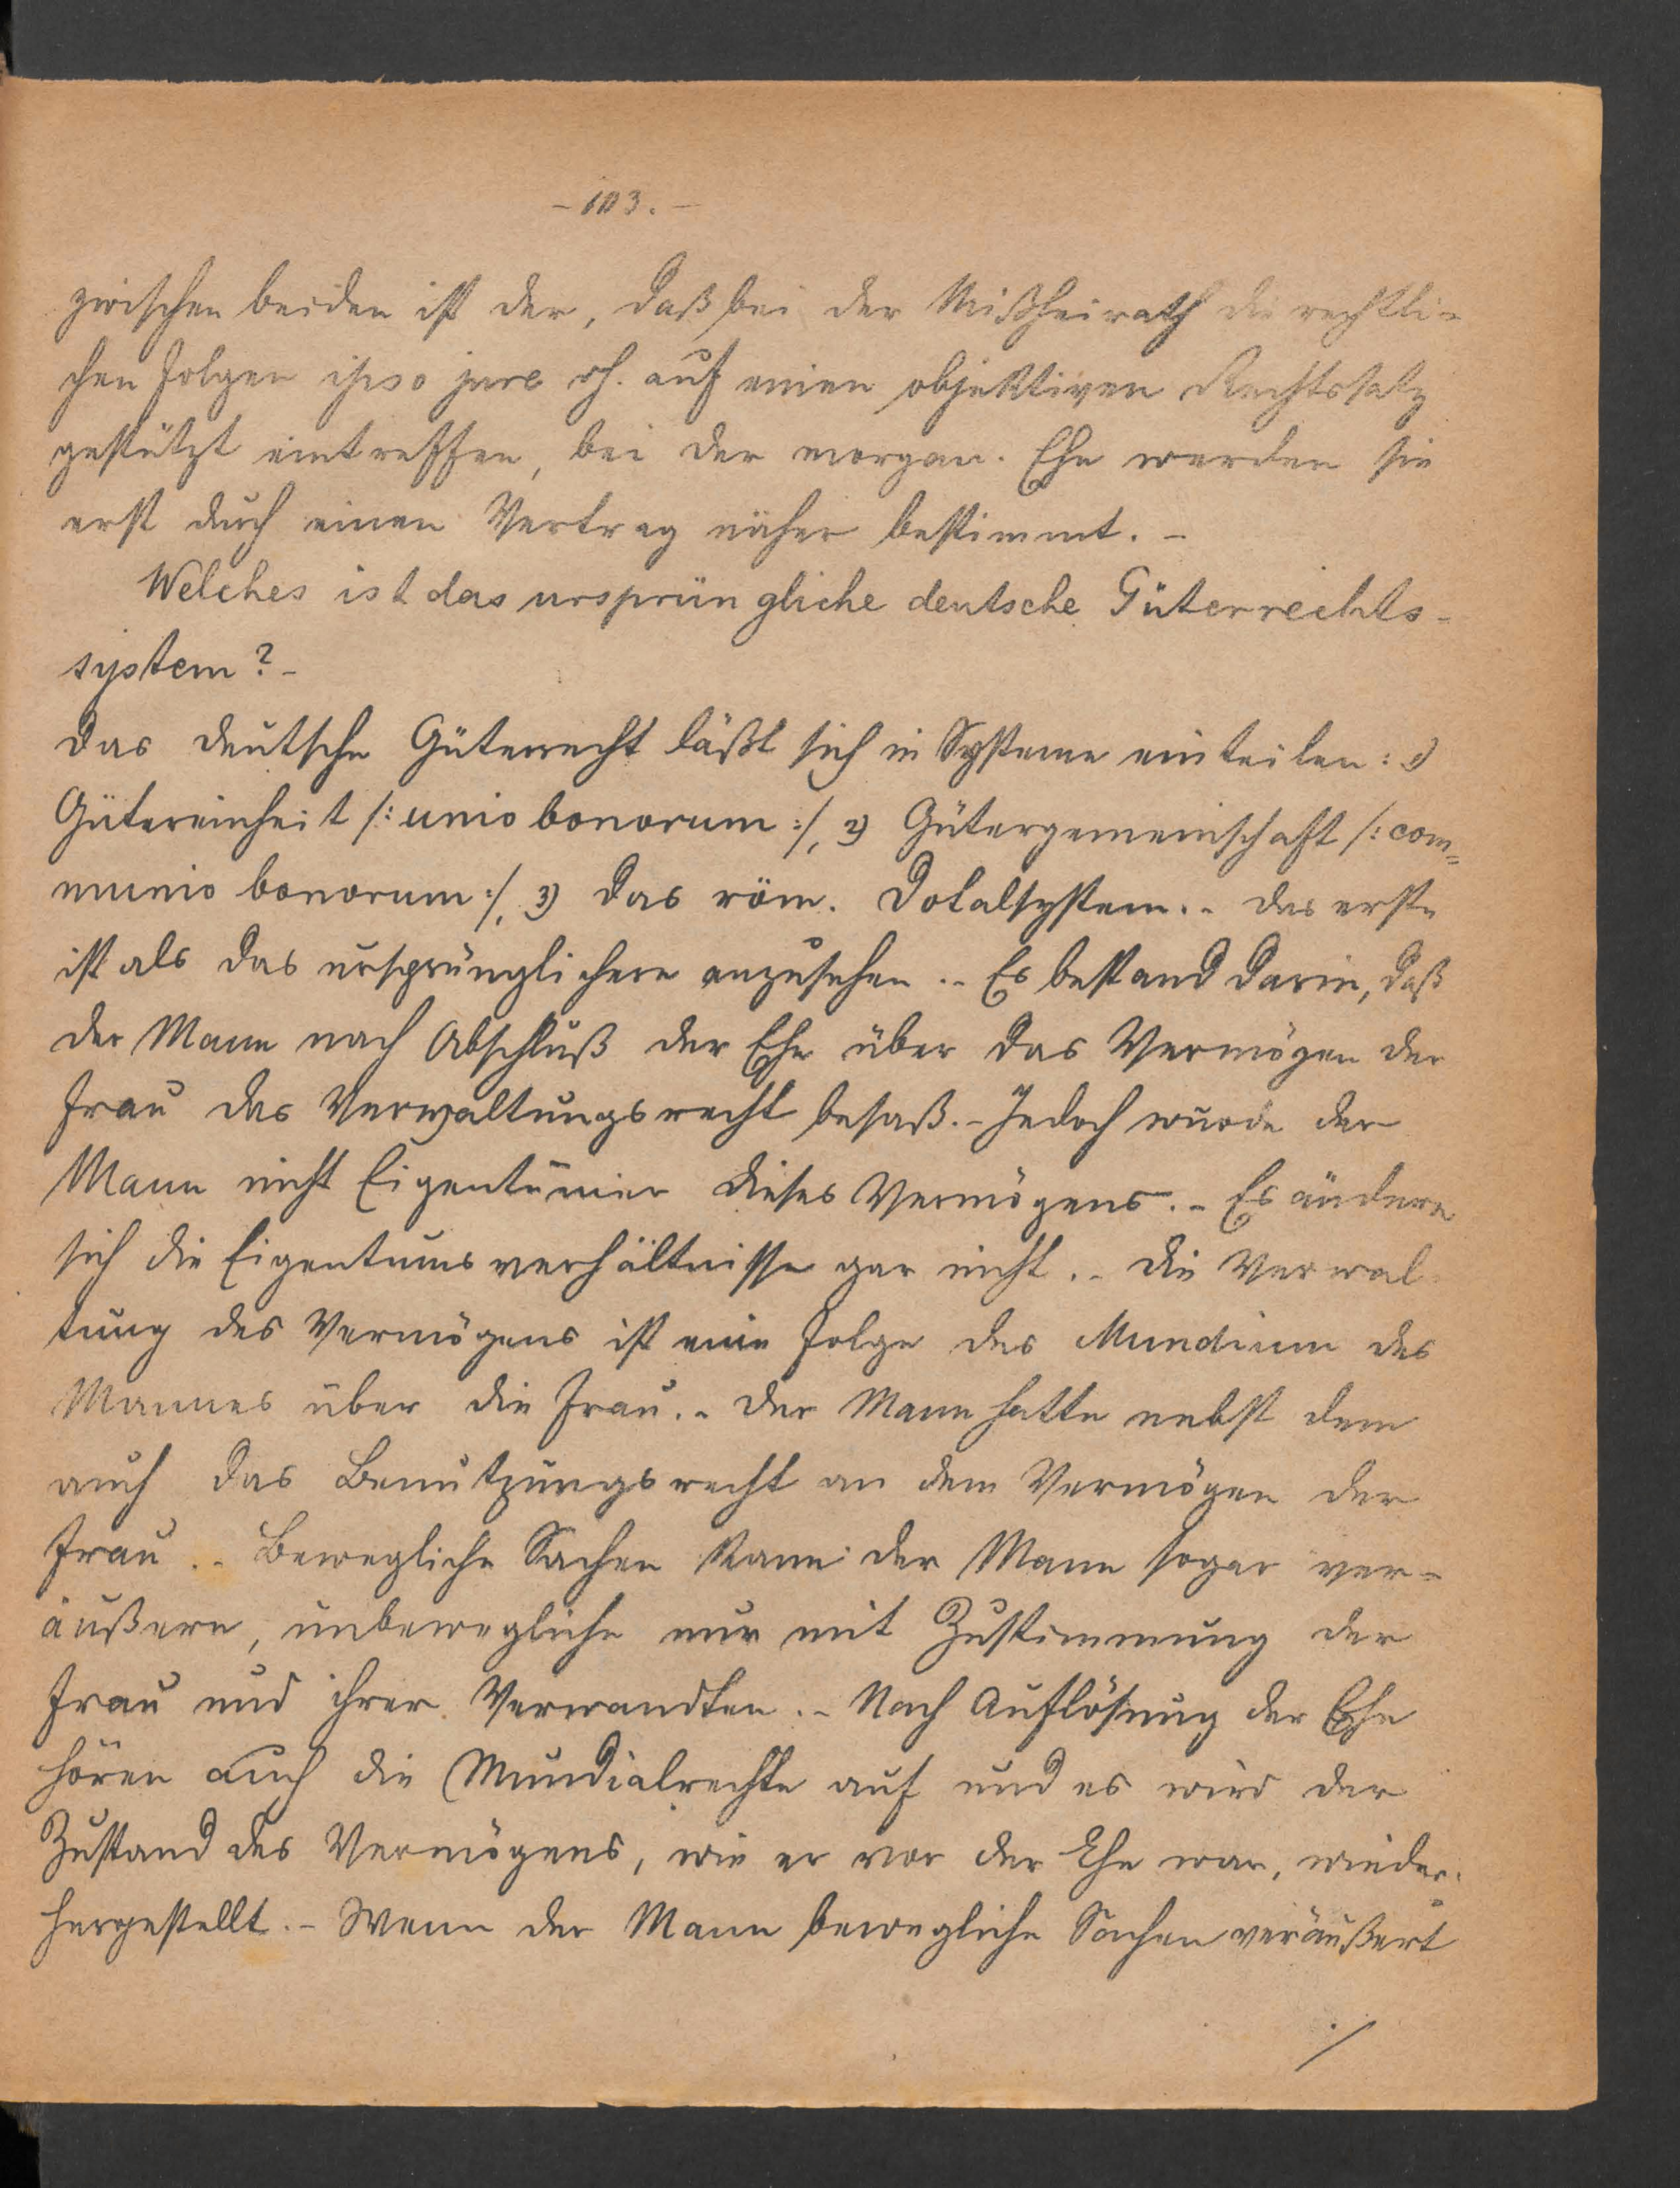 - 103. -
zwischen beiden ist der, daß bei der Mißheirath die rechtli-
chen Folgen ipso jure dh. auf einen objektiven Rechtssatz
gestützt eintreffen, bei der morgan. Ehe werden sie
erst durch einen Vertrag näher bestimmt. -
Welches ist das ursprüngliche deutsche Güterrechts-
system? -
Das deutsche Güterrecht läßt sich in Systeme einteilen: 1)
Gütereinheit /: unio bonorum :/, 2) Gütergemeinschaft /: com=
munio bonorum :/, 3) das röm. Dotalsystem. - Das erste
ist als das ursprünglichere anzusehen. - Es bestand darin, daß
der Mann nach Abschluß der Ehe über das Vermögen der
Frau das Verwaltungsrecht besaß. - Jedoch wurde der
Mann nicht Eigentümer dieses Vermögens. - Es ändern
sich die Eigentumsverhältnisse gar nicht. - Die Verwal-
tung des Vermögens ist eine Folge des Mundium des
Mannes über die Frau. - Der Mann hatte nebst dem
auch das Benutzungsrecht an dem Vermögen der
Frau. - Bewegliche Sachen kann der Mann sogar ver-
äußern, unbewegliche nur mit Zustimmung der
Frau und ihrer Verwandten. - Nach Auflösung der Ehe
hören auch die Mundialrechte auf und es wird der
Zustand des Vermögens, wie er vor der Ehe war, wieder-
hergestellt. - Wenn der Mann bewegliche Sachen veräußert
./